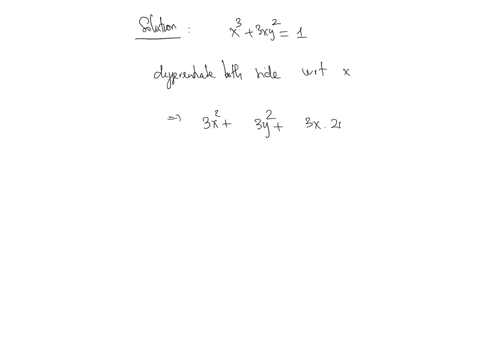 Solution : x³ + 3xy² = 1
differentiate both side wrt x
⇒ 3x² + 3y² + 3x · 2